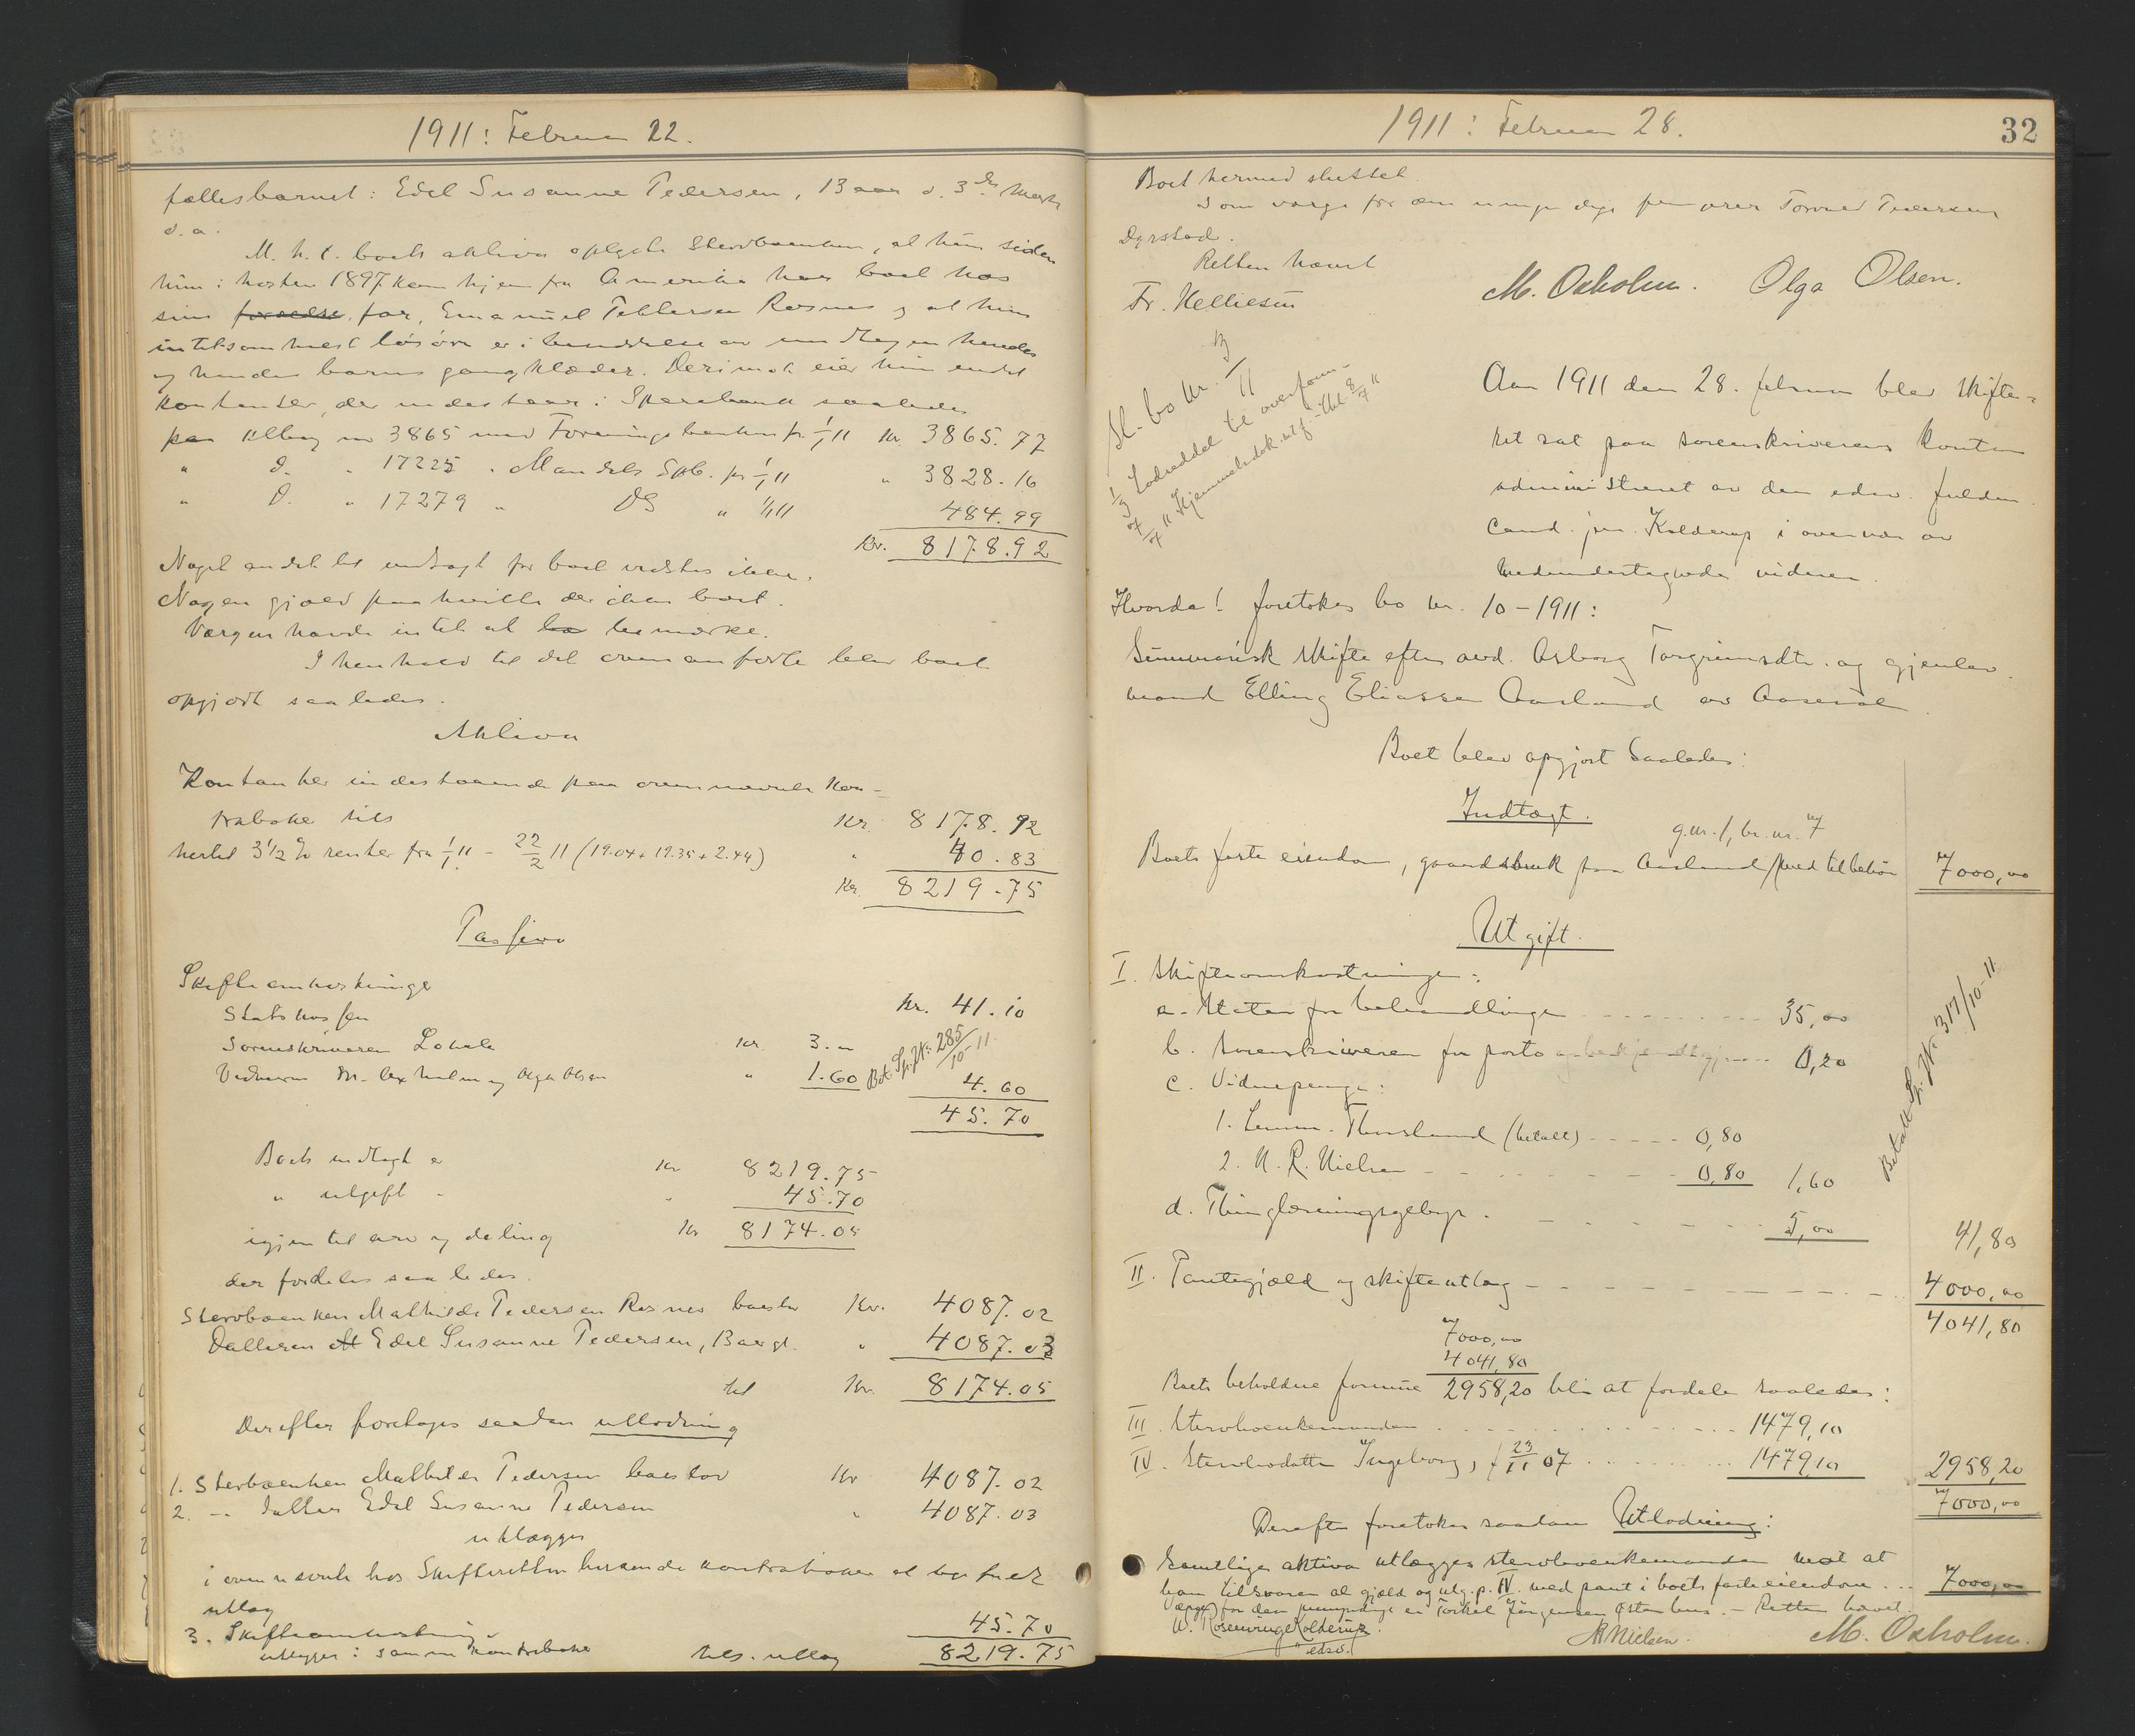 1911: Februar 22.
fællesbarnet: Edel Susanne Pedersen, 13 aar d. 3de Marts
d. a.
M. h. t. boets aktiva oplyste Stervboenken, at hun siden
hun i høsten 1897 kom hjem fra Amerika har boet hos
sin forældre far, Emanuel Rosnes og at hun
intetsomhelst løsøre er i besiddelse av undtagen hendes
og hendes barns gangklæder. Derimot eier hun endel
kontanter, der indestaar i Sparebank saaledes
paa 3865 med Foreningsbanken pr. 1/1 11 Kr. 3865.77
" d. " 17225 " Mandals Spb. pr 1/1 11 " 3828.16
" d. " 17279 " DS " 1/1 11 484.99
Kr. 8178.92
Noget andet til indtægt for boet vistes ikke.
Nogen gjæld paahvilte der ikke boet.
Værgen havde intet at be bemærke.
I henhold til det ovenanførte blev boet
opgjort saaledes.
Aktiva
Kontanter indestaaende paa ovennævnte Kon-
trabøker tils Kr. 8178.92
hertil 3 1/2 % renter fra 1/1 11 - 22/2 11 (19.04 + 19.35 + 2.44) " 40.83
Kr. 8219.75
Passiva
Skifteomkostninger
Statskassen Kr. 41.10
Sorenskriveren Lokale Kr. 3."
Vidnerne M. Oxholm og Olga Olsen " 1.60 4.60
Bet. Sp. Nr. 285/10-11.
45.70
Boets indtægt er Kr 8219.75
" utgift " " 45.70
igjen til arv og deling Kr 8174.05
der fordeles saaledes.
Stervboenken Mathilde Pedersen Rosnes boeslov Kr. 4087.02
Datteren Edel Susanne Pedersen, " 4087.03
til Kr. 8174.05
Derefter foretages saadan utlodning
1. Stervboenken Mathilde Pedersen boeslov Kr 4087.02
2. — datter Edel Susanne Pedersen " 4087.03
utlægges
i ovennævnte hos Skifteretten beroende kontrabøker
utlæg
3. Skifteomkostninger 45.70
utlægges i samme kontrabøker tils. utlæg 8219.75
1911: Februar 28.
32
Boet hermed sluttet.
Som værge for den umyndige fungerer Torvald Pedersen
Dyrstad.
Retten hævet
Fr. Helliesen M. Oxholm. Olga Olsen.
Sl. bo Nr. 13/11
1/3 Lodseddel til overform-
7/4 11 Hjemmelsdok. utf. 8/4 11
Aar 1911 den 28. februar blev skifte-
ret sat paa sorenskriverens kontor
administreret av den edsv. fuldm.
Cand. jur. Kolderup i overvær av
medundertegnede vidner.
Hvorda! foretokes bo nr. 10 - 1911:
Summarisk skifte efter avd. Asborg Torgrimsdtr. og gjenlev.
mand Elling Eliassen Aasland av Aaseral
Boet blev opgjort saaledes:
Indtægt.
g.nr. 1, br. nr. 7
Boets faste eiendom, gaardsbruk paa Aasland med tilbehør 7000,00
Utgift.
I. Skifteomkostninger:
a. Staten for behandlingen 35,00
b. Sorenskriveren for porto 0,20
c. Vidnepenge:
1. Lensm. Thorsland (betalt) 0,80
2. N. R. Nielsen 0,80 1,60
d. Thinglæsningsgebyr. 5,00 41,80
Betalt Sp. Nr. 317/10-11
II. Pantegjæld og skifteutlæg 4000,00
4041,80
7000,00
4041,80
Boets beholdne formue 2958,20 blir at fordele saaledes:
III. Stervboenkemanden 1479,10
IV. Stervbodatter Ingeborg, f 23/11 07 1479,10 2958,20
7000,00
Derefter foretokes saadan Utlodning:
Samtlige aktiva utlægges stervboenkemanden mot at
han tilsvarer al gjæld og utlg. p. IV. med pant i boets faste eiendom 7000,00
Værge for den umyndige er Torkel Jörgensen Østenbus. - Retten hævet.
W. Rosenvinge Kolderup.
edsv.
NRNielsen. M. Oxholm.